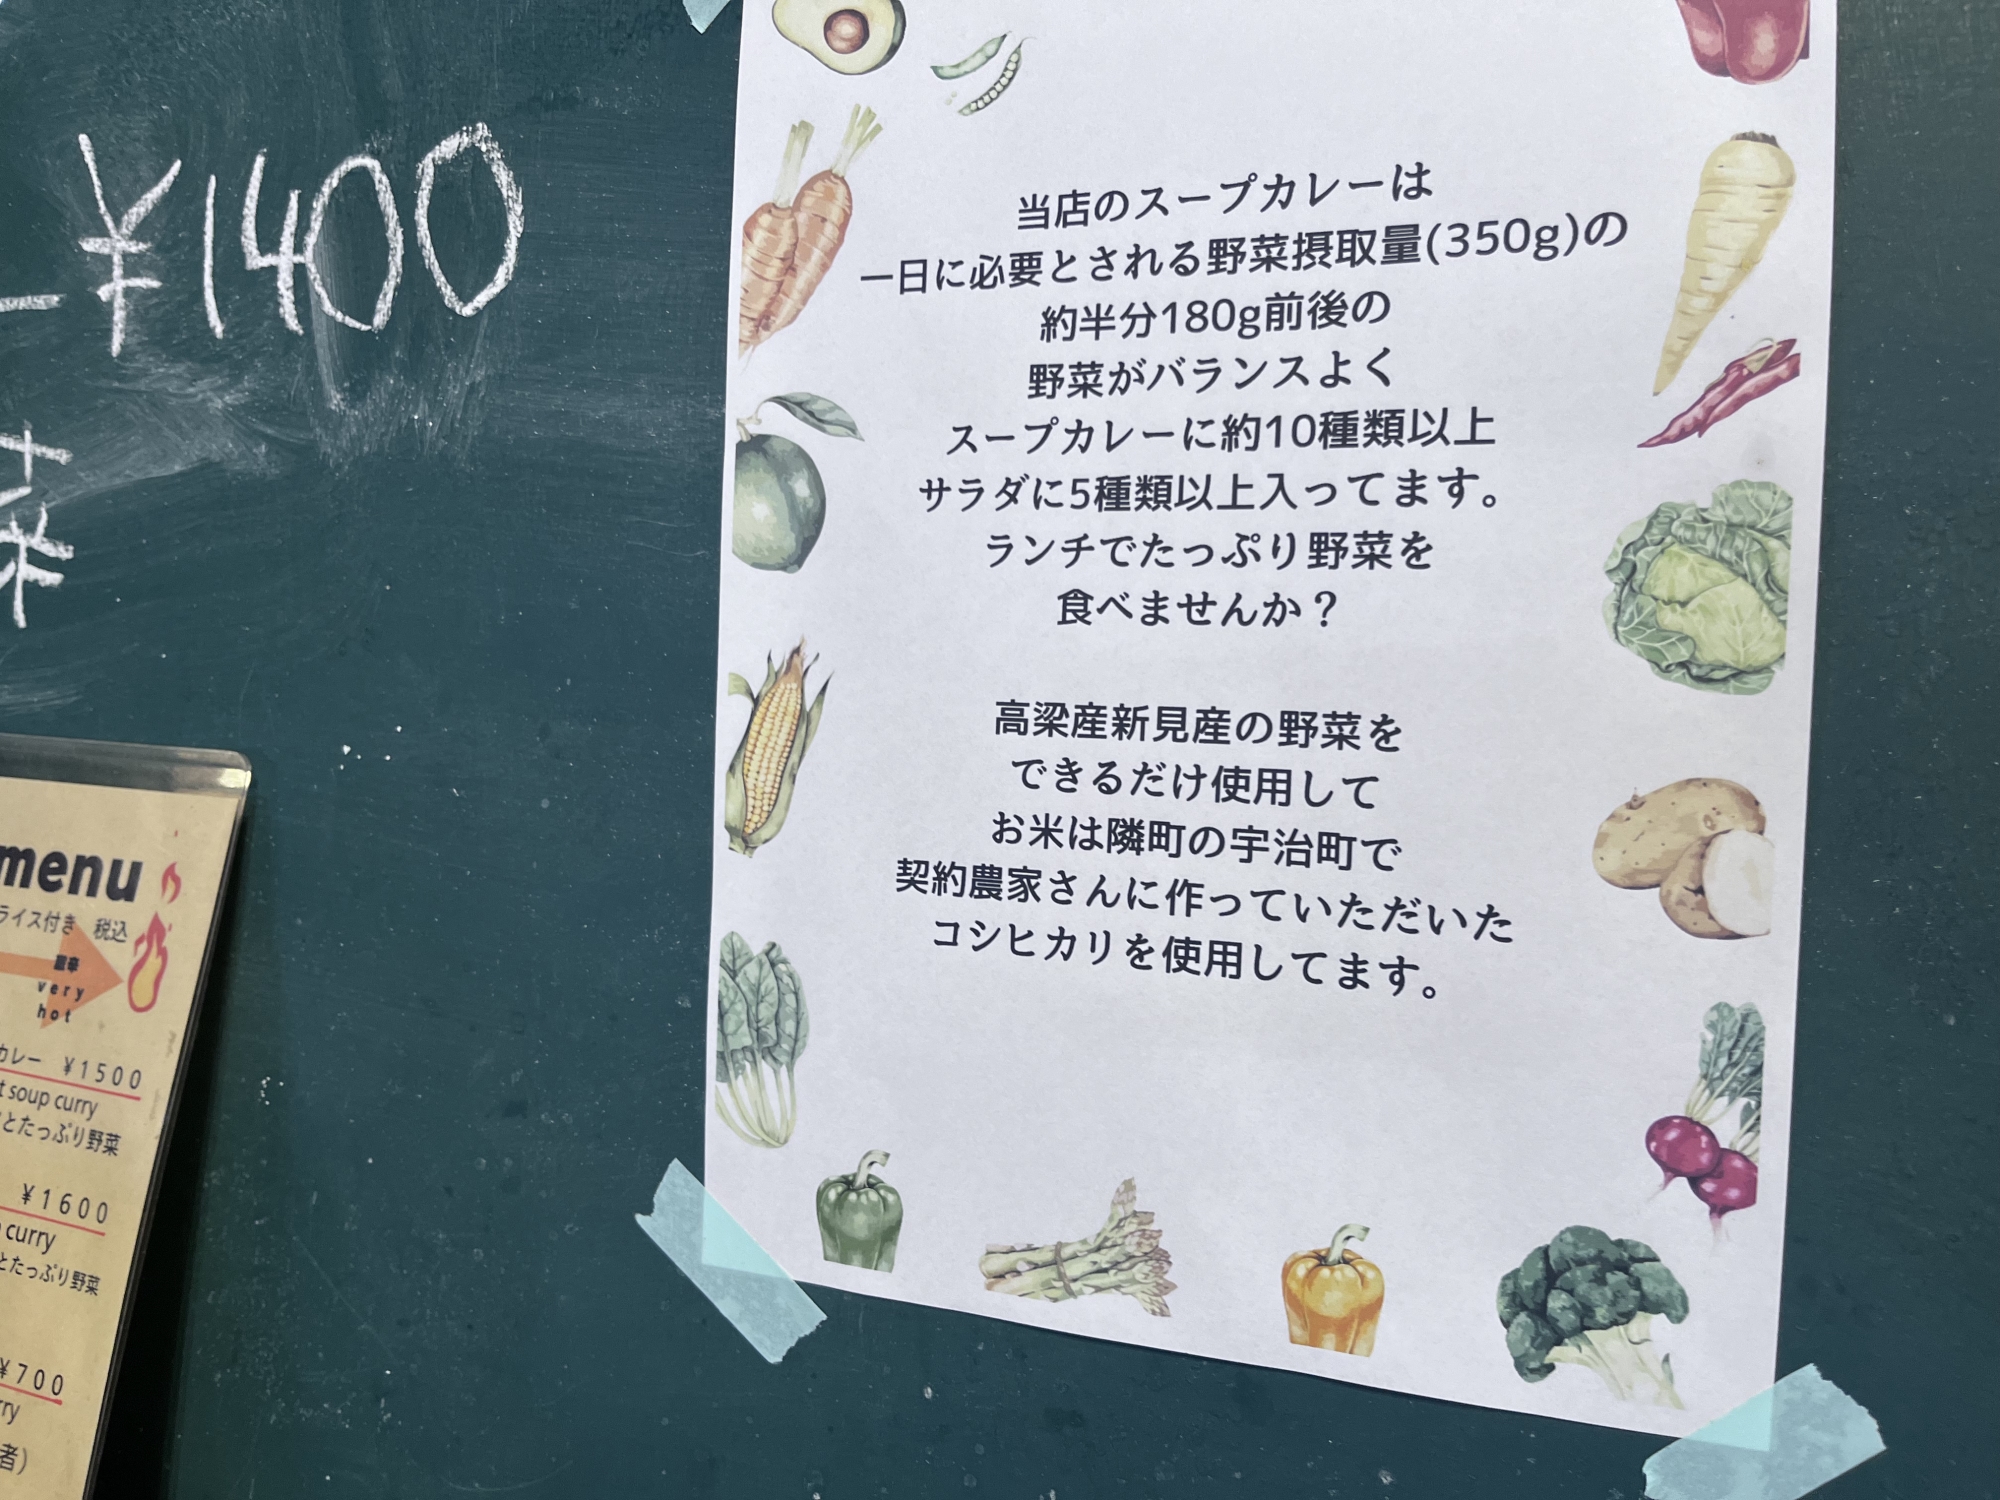 ¥1400
菜
当店のスープカレーは
一日に必要とされる野菜摂取量(350g)の
約半分180g前後の
野菜がバランスよく
スープカレーに約10種類以上
サラダに5種類以上入ってます。
ランチでたっぷり野菜を
食べませんか？
高梁産新見産の野菜を
できるだけ使用して
お米は隣町の宇治町で
契約農家さんに作っていただいた
コシヒカリを使用してます。
menu
ライス付き 税込
very
hot
カレー ¥1500
t soup curry
とたっぷり野菜
¥1600
curry
とたっぷり野菜
¥700
rry
者）